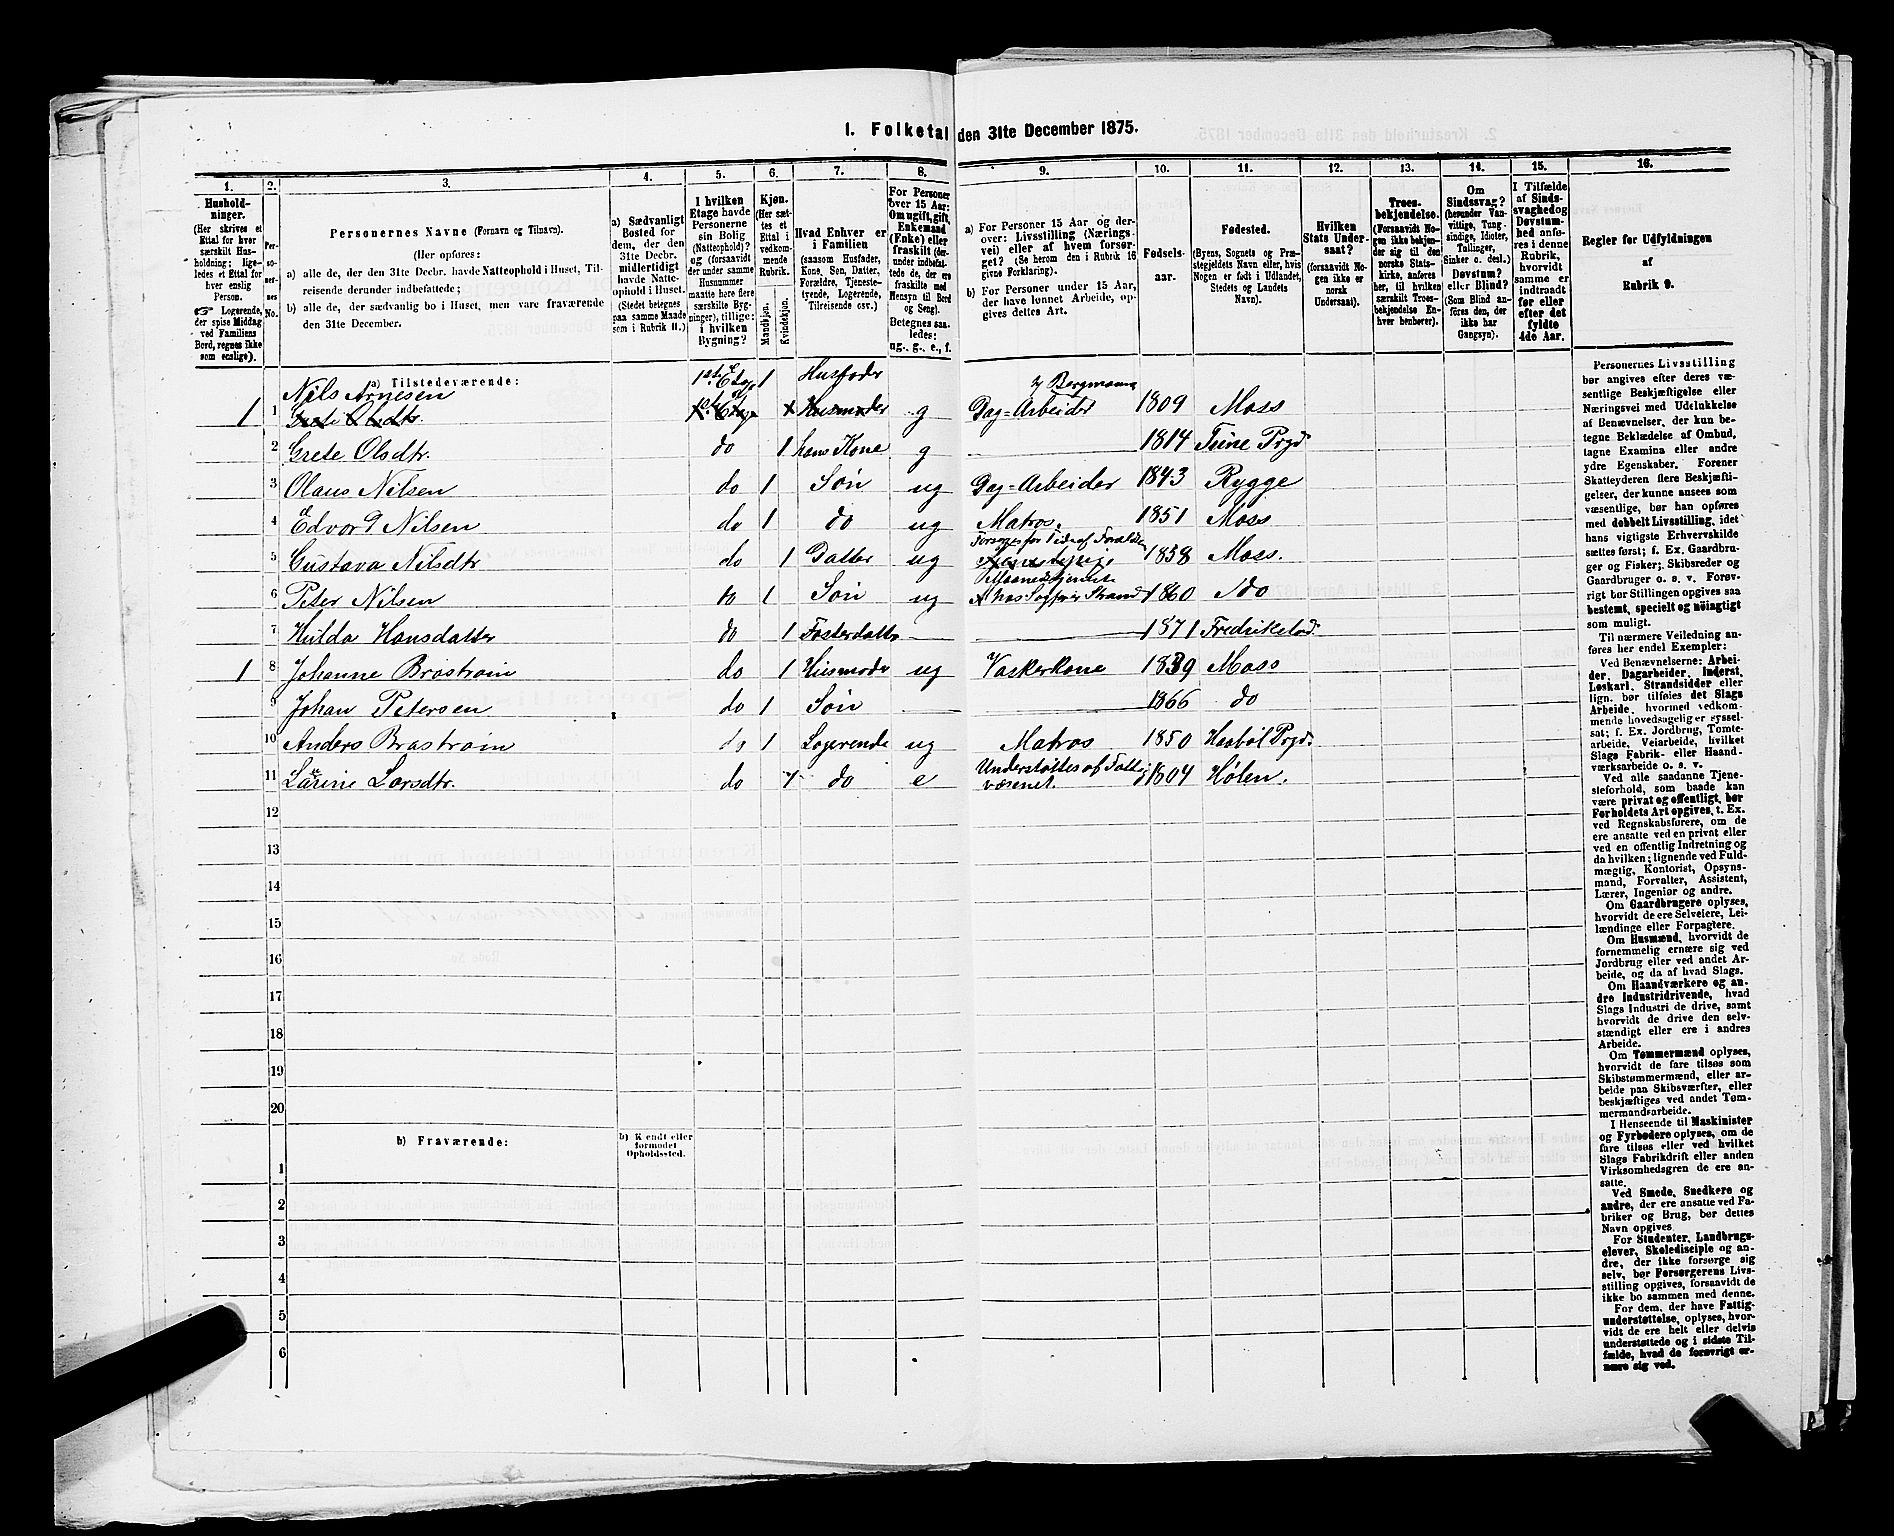 1. Folketal den 31te December 1875.
1. 2. 3. 4. 5. 6. 7. 8. 9. 10. 11. 12. 13. 14. 15. 16.
Husholdninger.
(Her skrives et
Ettal for hver
særskilt Husholdning; ligeledes et Ettal for
hver enslig
Person.
Logerende,
der spise Middag
ved Familiens
Bord, regnes ikke
som enslige).
Personernes No.
Personernes Navne (Fornavn og Tilnavn).
(Her opføres:
a) alle de, der den 31te Decbr. havde Natteophold i Huset, Tilreisende derunder indbefattede;
b) alle de, der sædvanlig bo i Huset, men vare fraværende
den 31te December.
a) Sædvanligt
Bosted for
dem, der den
31te Decbr.
midlertidigt
havde Natteophold i Huset.
(Stedet betegnes
paa samme Maade
som i Rubrik 11.)
I hvilken
Etage havde
Personerne
sin Bolig
(Natteophold)?
og (forsaavidt
der under samme
Husnummer
maatte høre flere
særskilte Bygninger), tillige:
i hvilken
Bygning?
Kjøn.
(Her sættes et
Ettal i
vedkommende
Rubrik.
Mandkjøn.
Kvindekjøn.
Hvad Enhver er
i Familien
(saasom Husfader,
Kone, Søn, Datter,
Forældre, Tjenestetyende, Logerende,
Tilreisende osv.)
For Personer
over 15 Aar:
Om ugift, gift,
Enkemand
(Enke) eller
fraskilt
Betegnes saaledes:
ug., g., e., f.
a) For Personer 15 Aar og derover: Livsstilling (Næringsvei) eller af hvem forsørget? (Se herom den i Rubrik 16
givne Forklaring).
b) For Personer under 15 Aar,
der have lønnet Arbeide, opgives dettes Art.
Fødselsaar.
Fødested.
(Byens, Sognets og Præstegjeldets Navn eller, hvis
Nogen er født i Udlandet,
Stedets og Landets
Navn).
Hvilken
Stats Undersaat?
(forsaavidt Nogen ikke er
norsk
Undersaat).
Troesbekjendelse.
(Forsaavidt Nogen ikke bekjender sig til den
norske Statskirke, anføres
her, til hvilken
særskilt Troesbekjendelse Enhver henhører).
Om
Sindssvag?
(herunder Vanvittige, Tungsindige, Idioter,
Tullinger,
Sinker o. desl.)
Døvstum?
eller Blind?
(Som Blind anføres den, der
ikke har
Gangsyn).
I Tilfælde
af Sindssvaghed og
Døvstumhed anføres i denne
Rubrik,
hvorvidt
samme er
indtraadt
før eller
efter det
fyldte
4de Aar.
Regler for Udfyldningen
af
Rubrik 9.
a) Tilstedeværende:
Nils Arnesen 1ste Etage 1 Husfader
1 1 Grete Olsdtr. 1ste Etage Husmoder g Dag-Arbeider 1809 Moss
2 Grete Olsdtr. do 1 hans Kone g 1814 Tune Prgd
3 Olaus Nilsen do 1 Søn ug Dag-Arbeider 1843 Rygge
4 Edvard Nilsen do 1 do ug Matros. 1851 Moss
5 Gustava Nilsdtr do 1 Datter ug 1858 Moss.
6 Peter Nilsen do 1 Søn ug 1860 do
7 Hulda Hansdatter do 1 Fosterdatter 1871 Fredrikstad.
1 8 Johanne Brastrøin do 1 Husmoder ug Vaskerkone 1839 Moss
9 Johan Petersen do 1 Søn 1866 do
10 Anders Brastrøin do 1 Logerende ug Matros 1850 Haabøl Prgd.
11 Larine Larsdtr. do 1 do e Understøttes af Fattigvæsenet. 1804 Hølen.
12
13
14
15
16
17
18
19
20
b) Fraværende:
b) Kjendt eller
formodet
Opholdssted.
1
2
3
4
5
6
Personernes Livsstilling
bør angives efter deres væsentlige Beskjæftigelse eller
Næringsvei med Udelukkelse
af Benævnelser, der kun betegne Beklædelse af Ombud,
tagne Examina eller andre
ydre Egenskaber. Forener
Skatteyderen flere Beskjæftigelser, der kunne ansees som
væsentlige, bør han opføres
med dobbelt Livsstilling, idet
hans vigtigste Erhvervskilde
sættes først; f. Ex. Gaardbruger og Fisker; Skibsreder og
Gaardbruger o. s. v. Forøvrigt bør Stillingen opgives saa
bestemt, specielt og nøiagtigt
som muligt.
Til nærmere Veiledning anføres her endel Exempler:
Ved Benævnelserne: Arbeider, Dagarbeider, Inderst,
Løskarl, Strandsidder eller
lign. bør tilføies det Slags
Arbeide, hvormed vedkommende hovedsagelig er sysselsat; f. Ex. Jordbrug, Tomtearbeide, Veiarbeide, hvilket
Slags Fabrik- eller Haandværksarbeide o. s. v.
Ved alle saadanne Tjenesteforhold, som baade kan
være privat og offentligt, bør
Forholdets Art opgives, t. Ex.
ved Regnskabsførere, om de
ere ansatte ved en privat eller
ved en offentlig Indretning og
da hvilken; lignende ved Fuldmægtig, Kontorist, Opsynsmand, Forvalter, Assistent,
Lærer, Ingeniør og andre.
Om Gaardbrugere oplyses,
hvorvidt de ere Selveiere, Leilændinge eller Forpagtere.
Om Husmænd, hvorvidt de
fornemmelig ernære sig ved
Jordbrug eller ved andet Arbeide, og da af hvad Slags.
Om Haandværkere og andre Industridrivende, hvad
Slags Industri de drive, samt
hvorvidt de drive den selvstændigt eller ere i andres
Arbeide.
Om Tømmermænd oplyses,
hvorvidt de fare tilsøs som
Skibstømmermænd, eller arbeide paa Skibsværfter, eller
beskjæftiges ved andet Tømmermandsarbeide.
I Henseende til Maskinister
og Fyrbødere oplyses, om de
fare tilsøs eller ved hvilket
Slags Fabrikdrift eller anden
Virksomhedsgren de ere ansatte.
Ved Smede, Snedkere og
andre, der ere ansatte ved Fabriker og Brug, bør dettes
Navn opgives.
For Studenter, Landbrugselever, Skoledisciple og andre, der ikke forsørge sig
selv, bør Forsørgerens Livsstilling opgives, forsaavidt de
ikke bo sammen med denne.
For dem, der have Fattigunderstøttelse, oplyses, hvorvidt de ere helt eller delvis
understøttede og i sidste Tilfælde, hvad de forøvrigt ernære sig ved.